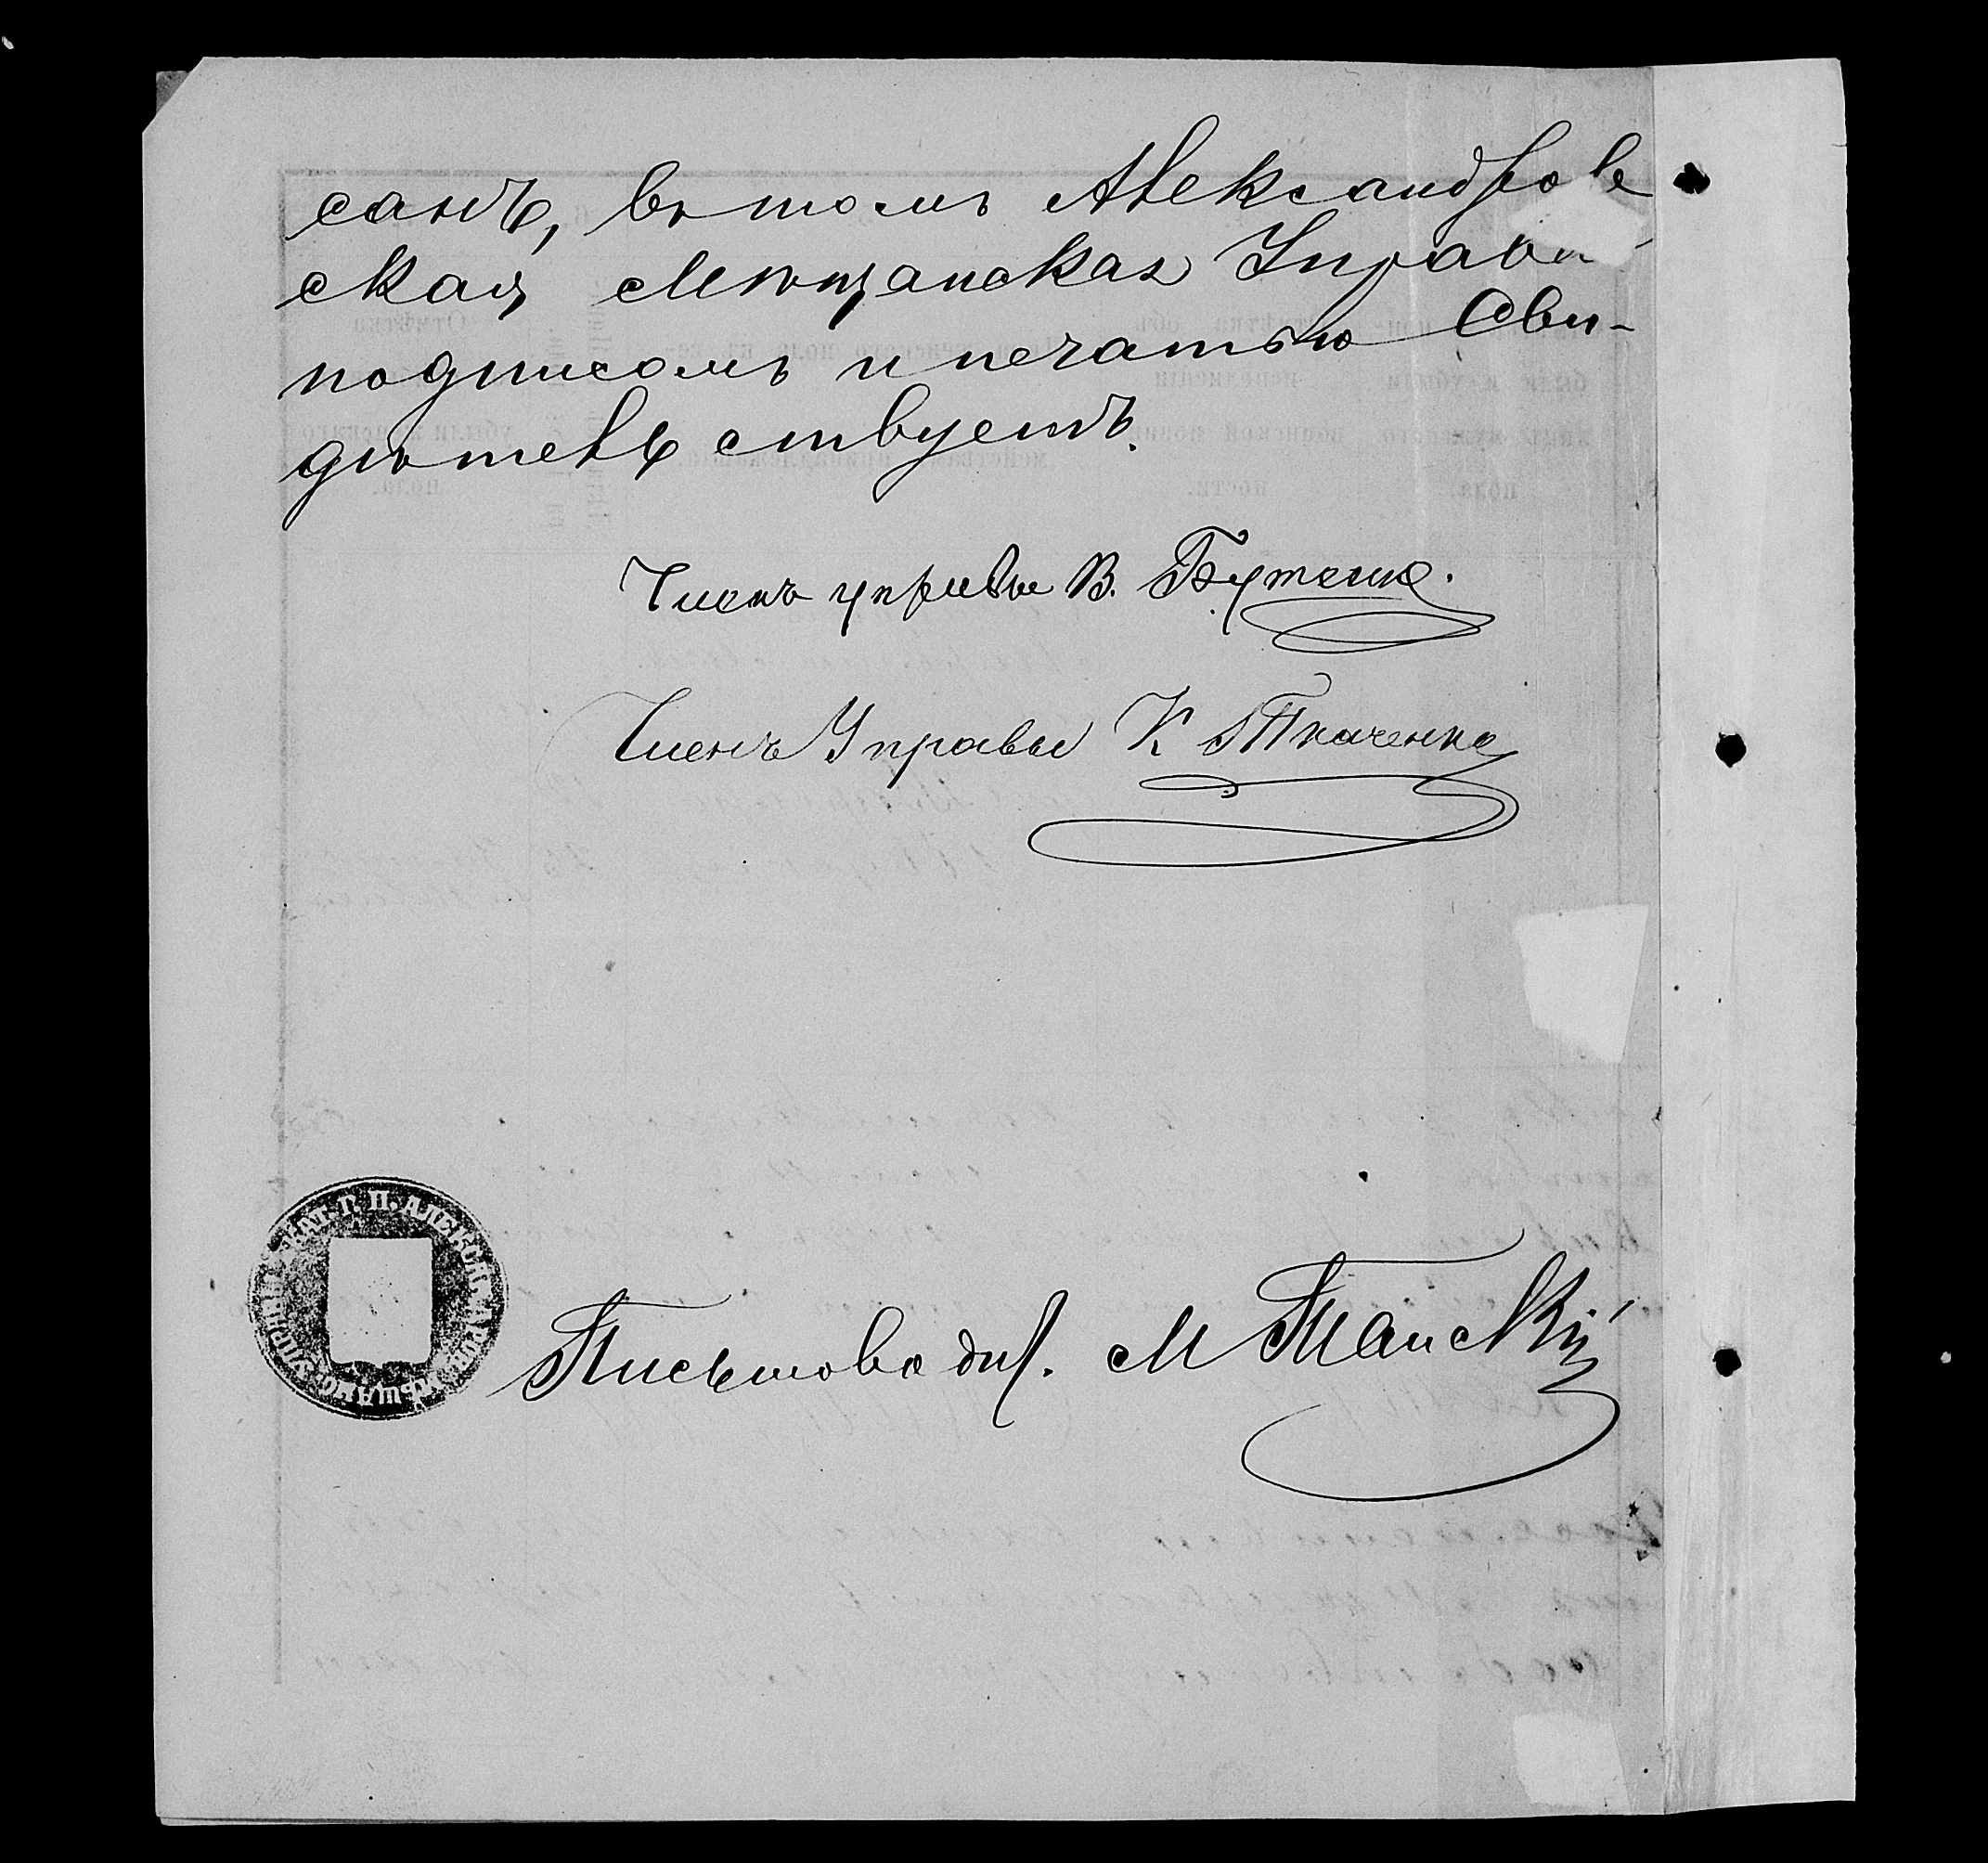 санъ, въ томъ Александров
ская Мѣщанская Управа
подписомъ и печатью Сви-
дѣтельствуетъ.
Членъ управы В. Бутенко.
Членъ Управы К Ткаченко
ЕКАТ. Г. П. АЛЕКСАНДРОВ. МѢЩАНС. УПРАВЫ
Письмовод. М Танскій